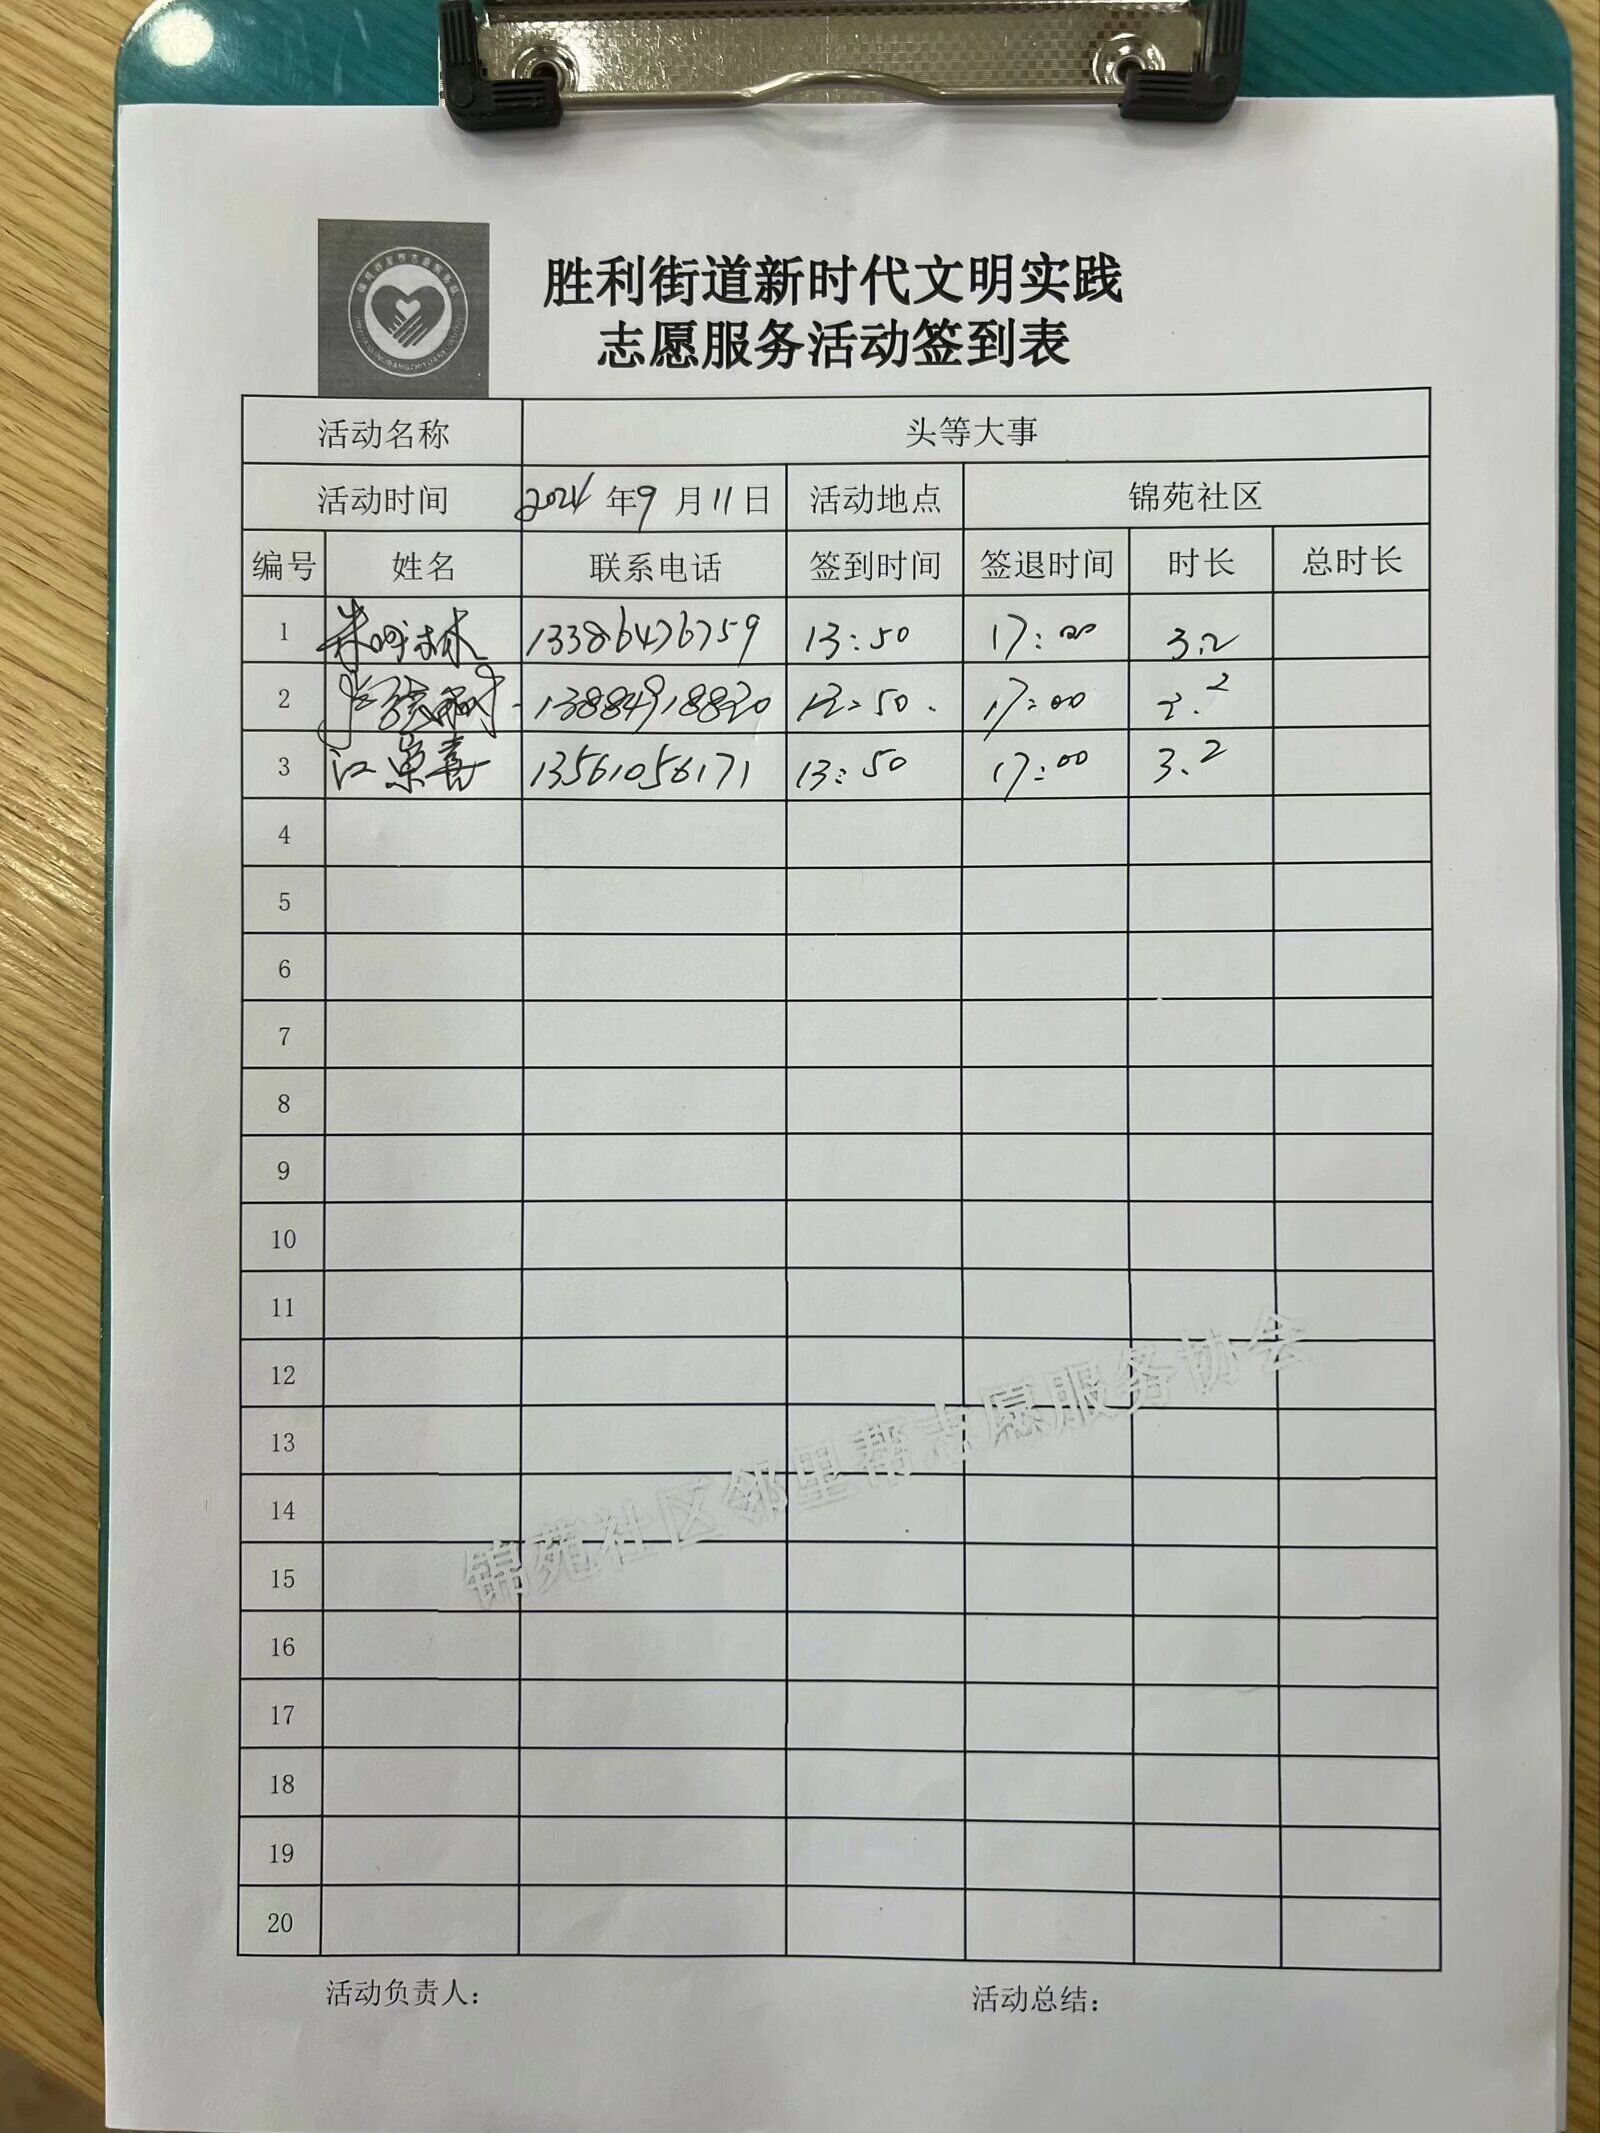 胜利街道新时代文明实践
志愿服务活动签到表
活动名称 头等大事
活动时间 2024年9月11日 活动地点 锦苑社区
编号 姓名 联系电话 签到时间 签退时间 时长 总时长
1 13386476759 13:50 17:00 3.2
2 13884918820 13:50 17:00 3.2
3 江泉喜 13561056171 13:50 17:00 3.2
4
5
6
7
8
9
10
11
12
13
14
15
16
17
18
19
20
锦苑社区邻里帮志愿服务协会
活动负责人： 活动总结：